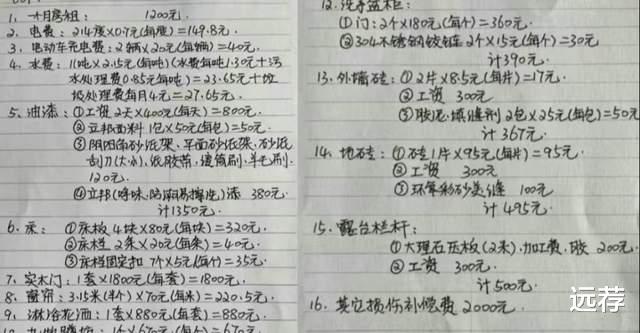 1、十月房租: 1200元.
2、电费: 214度×0.7元(每度)=149.8元.
3、电动车充电费: 2辆×20元(每辆)=40元.
4、水费: 11吨×2.15元(每吨)(水费每吨1.30元+污
水处理费0.85元每吨)=23.65元+垃
圾处理费每月4元=27.65元.
5、油漆: ①工资 2天×400元(每天)=800元.
②立邦面料 1包×50元(每包)=50元.
③阴阳角砂纸架、平面砂纸架、砂纸
刮刀(大、小)、纸胶带、滚筒刷、羊毛刷.
120元.
④立邦 漆 380元.
计1350元.
6、床: ①床板 4块×80元(每块)=320元.
②床档 2条×20元(每条)=40元.
③床档固定扣 7个×5元(每个)=35元.
7、实木门: 1套×1800元(每套)=1800元.
8、窗帘: 3.15米(半个)×70元(每米)=220.5元.
9、淋浴花洒: 1套×880元(每套)=880元.
12、洗手盆柜:
①门: 2个×180元(每个)=360元.
②304不锈钢铰链 2个×15元(每个)=30元
计390元.
13、外墙砖: ①2片×8.5元(每片)=17元.
②工资 300元
③胶泥、填缝剂 2包×25元(每包)=50元
计367元.
14、地砖: ①砖1片×95元(每片)=95元.
②工资 300元
③环氧彩砂美缝 100元
计495元.
15、露台栏杆:
①大理石压板(2米)、加工费、胶 200元.
②工资 300元.
计500元.
16、其它损伤补偿费 2000元.
远荐